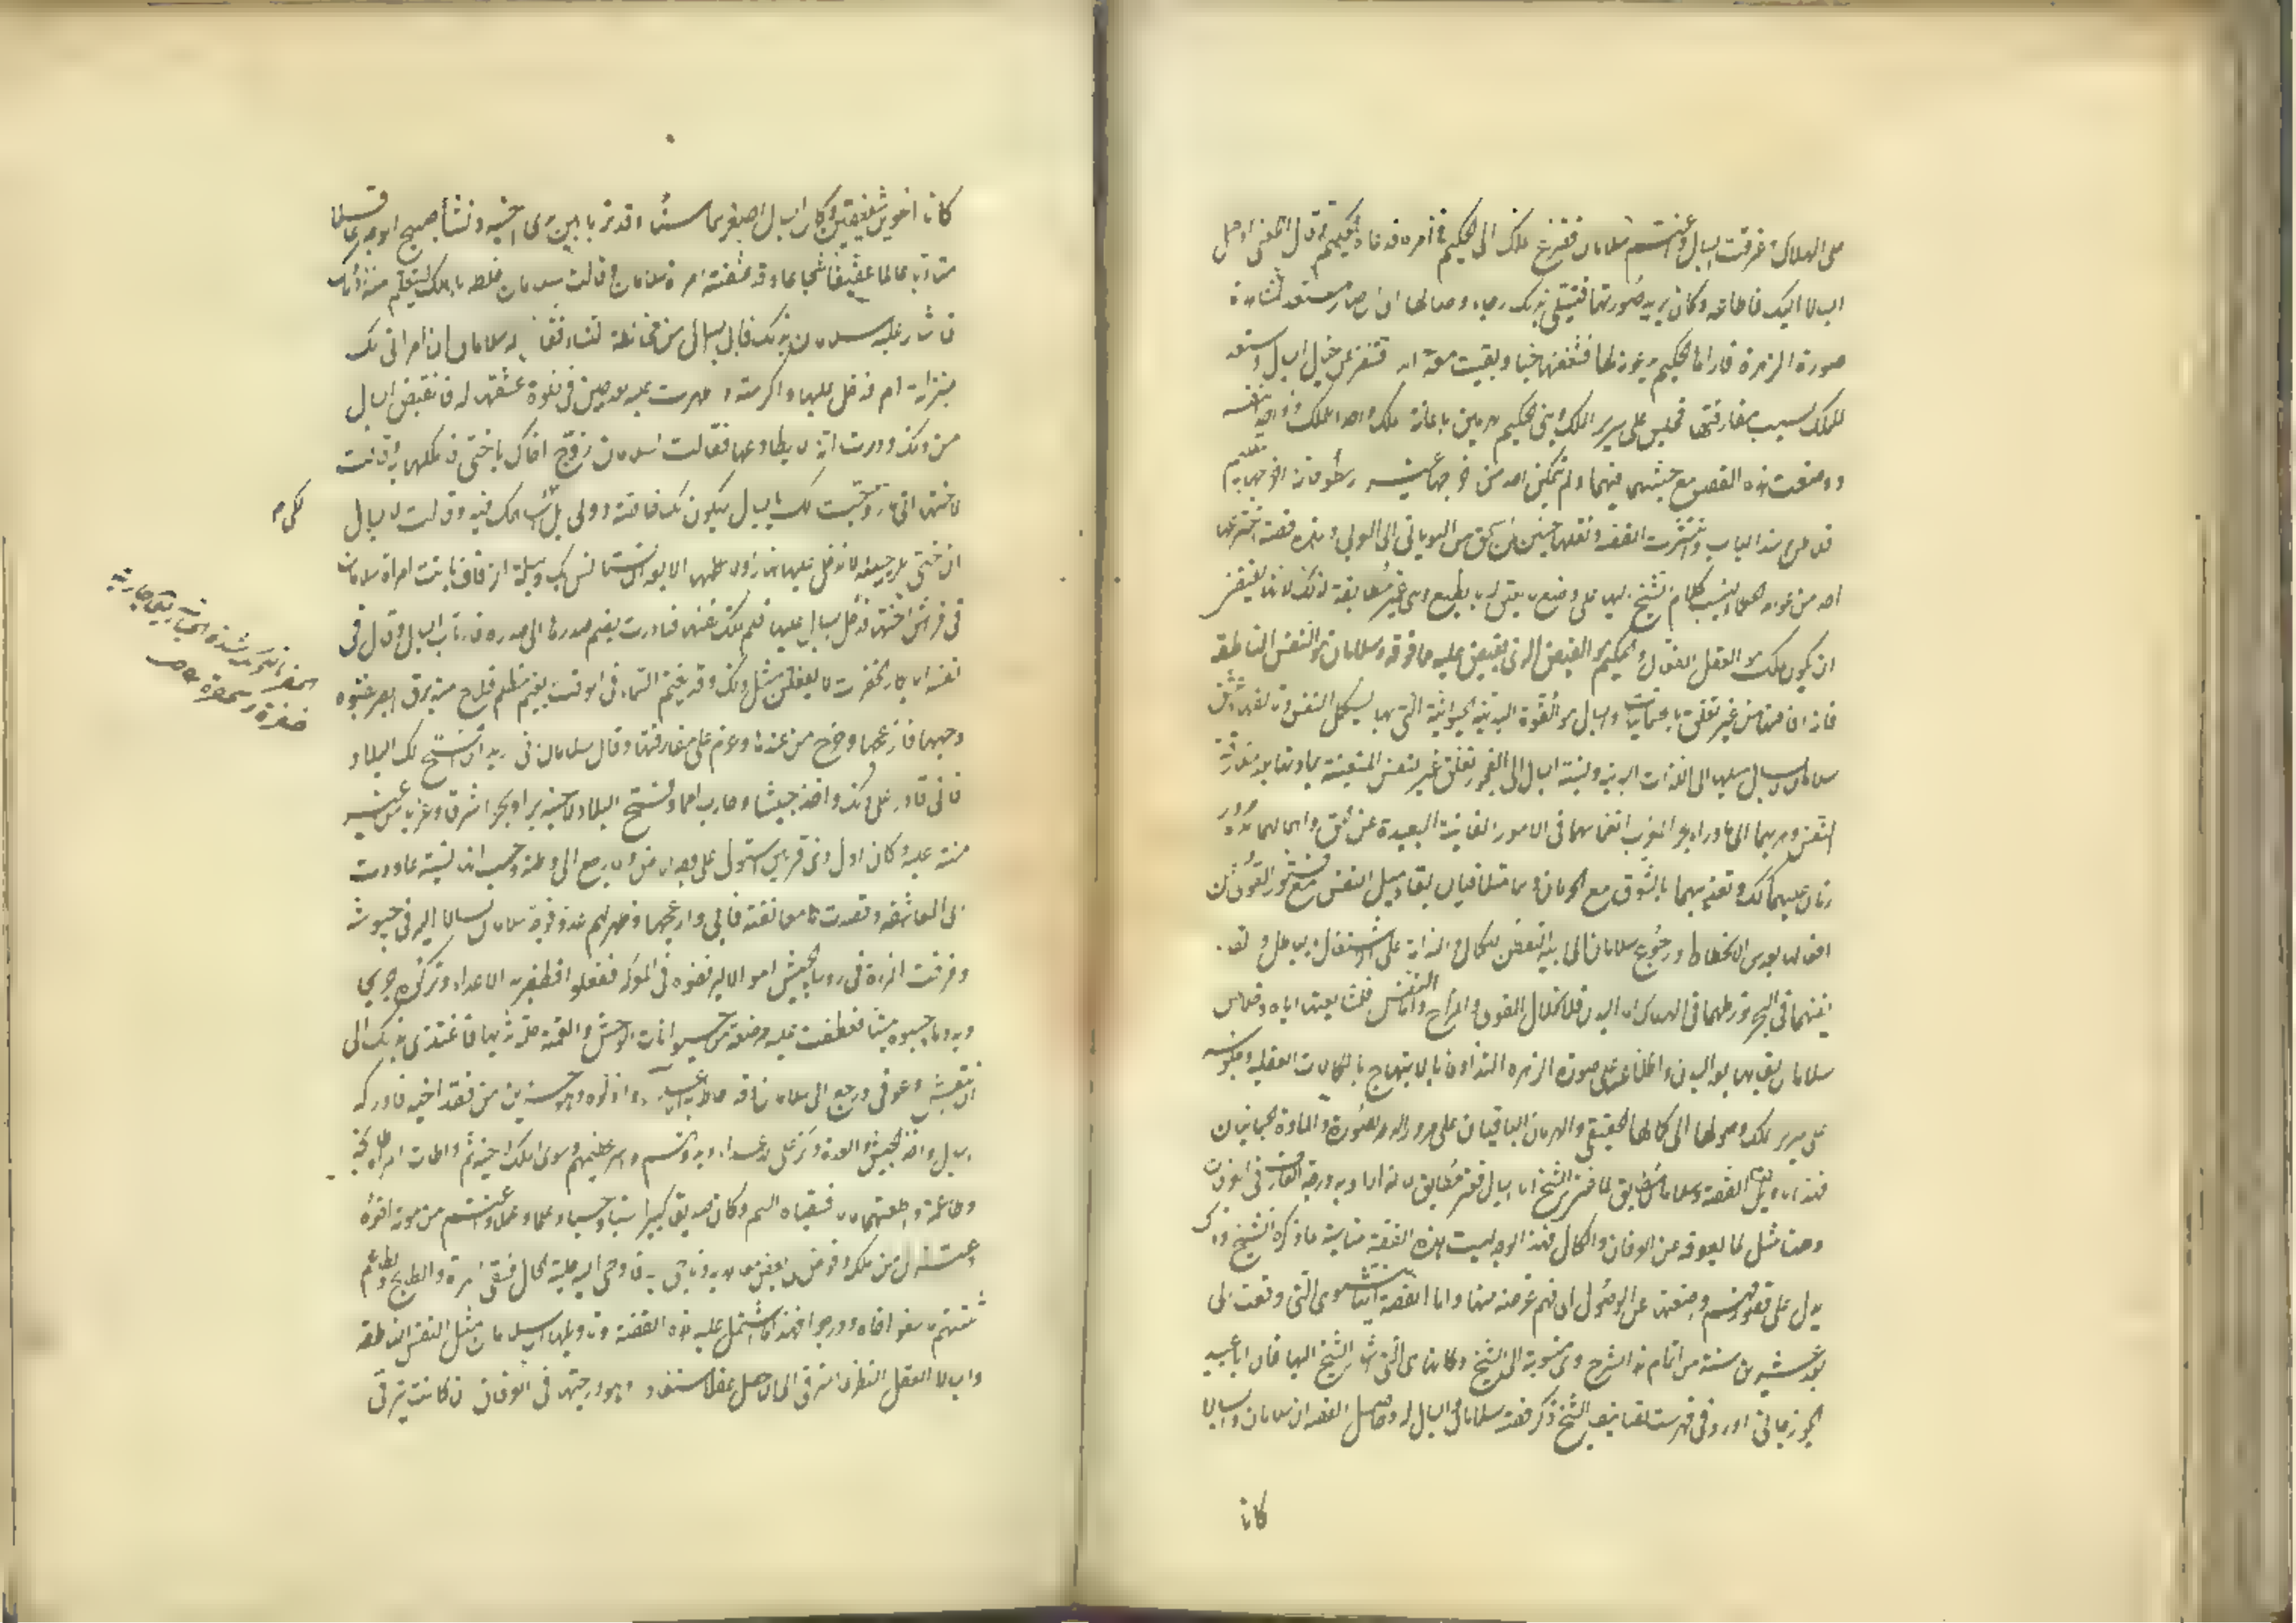 على الهلاك وغرقت ابسال واغتم سلامان ففزع الملك الى الحكيم فى امره فدعاه الحكيم وقال اطعنى اوصل
ابسالا اليك فاطاعه وكان يريه صورتها فيتسلى بذلك رجاء وصالها الى ان صار مستعدا لمشاهدة
صورة الزهرة فاراها الحكيم بدعوته لها فشغفها حبا وبقيت معه ابدا فتنفر عن خيال ابسال واستعد
للملك بسبب مفارقتها فجلس على سرير الملك وبنى الحكيم الهرمين باعانة الملك واحدا للملك وواحدا لنفسه
ووضعت هذه القصة مع جثتيهما فيهما ولم يتمكن احد من اخراجها غير ارسطو فانه اخرجها بتعليم
افلاطون وسد الباب وانتشرت القصة ونقلها حنين بن اسحق من اليونانى الى العربى وهذه قصة اخترعها
احد من عوام الحكماء لينسب كلام الشيخ اليها على وضع لا يتعلق بالطبع وهى غير مطابقة لذلك لانها يقتضى
ان يكون الملك هو العقل الفعال والحكيم هو الفيض الذى يفيض عليه مما فوقه وسلامان هو النفس الناطقة
فانه افاضها من غير تعلق بالجسمانيات وابسال هو القوة البدنية الحيوانية التى بها يستكمل النفس وتالفها وعشق
سلامان لابسال ميلها الى اللذات البدنية ونسبة ابسال الى الفجور تعلق غير النفس المتعينة بمادتها بعد مفارقة
النفس وهربهما الى ما وراء بحر المغرب انغماسهما فى الامور الفانية البعيدة عن الحق واهمالهما مدة مرور
زمان عليهما كذلك وتعذيبهما بالشوق مع الحرمان وهما متلاقيان بقاء ميل النفس مع فتور القوى عن
افعالها بعد سن الانحطاط ورجوع سلامان الى ابيه التفطن للكمال والندامة على الاشتغال بالباطل والقاء
نفسهما فى البحر تورطهما فى الهلاك اما البدن فلانحلال القوى والمزاج واما النفس فلمشايعتها اياه وخلاص
سلامان بقاؤها بعد البدن واطلاعه على صورة الزهرة التذاذها بالابتهاج بالكمالات العقلية وجلوسه
على سرير الملك وصولها الى كمالها الحقيقى والهرمان الباقيان على مرور الدهر الصورة والمادة الجسمانيتان
فهذا تاويل القصة وسلامان مطابق لما عنى الشيخ اما ابسال فغير مطابق لانه اراد به درجة العارف فى العرفان
وههنا مثل لما يعوقه عن العرفان والكمال فبهذا الوجه ليست هذه القصة مناسبة لما ذكره الشيخ وذلك
يدل على قصور فهم واضعها عن الوصول الى فهم غرضه منها واما القصة الثانية وهى التى وقعت الى
بعد عشرين سنة من اتمام الشرح وهى منسوبة الى الشيخ وكانها هى التى اشار الشيخ اليها فان ابا عبيد
الجوزجانى اورد فى فهرست تصانيف الشيخ ذكر قصة سلامان وابسال له وحاصل القصة ان سلامان وابسالا
كانا
كانا اخوين شقيقين وكان ابسال اصغرهما سنا وقد تربى بين يدى اخيه ونشأ صبيح الوجه عاقلا
متادبا عالما عفيفا شجاعا وقد عشقته امرأة سلامان وقالت لسلامان اخلطه باهلك ليتعلم منه اولادك
فاشار عليه سلامان بذلك فابى ابسال من مخالطة النساء فقال له سلامان ان امرأتى لك
بمنزلة ام فدخل عليها واكرمته واظهرت عليه بعد حين فى خلوة عشقها له فانقبض ابسال
من ذلك ودرت انه لا يطاوعها فقالت لسلامان زوج اخاك باختى فاملكها به وقالت
لاختها انى ما زوجتك بابسال ليكون لك خاصة دونى بل لكى اساهمك فيه وقالت لابسال
ان اختى بكر حيية لا تدخل عليها نهارا ولا تكلمها الا بعد ان تستانس بك وليلة الزفاف باتت امرأة سلامان
فى فراش اختها فدخل ابسال عليها فلم تملك نفسها فبادرت بضم صدرها الى صدره فارتاب ابسال وقال فى
نفسه ان الابكار الخفرات لا يفعلن مثل ذلك وقد تغيم السماء فى الوقت بغيم مظلم فلاح منه برق ابصر بضوئه
وجهها فازعجها وخرج من عندها وعزم على مفارقتها وقال لسلامان انى اريد ان افتح لك البلاد
فانى قادر على ذلك واخذ جيشا وحارب امما وفتح البلاد لاخيه برا وبحرا شرقا وغربا من غير
منة عليه وكان اول ذى قرنين استولى على وجه الارض ولما رجع الى وطنه وحسب انها نسيته عاودت
الى المعاشقة وقصدت معانقته فابى وازعجها وظهر لهم عدو فوجه سلامان ابسالا اليه فى جيوشه
وفرقت المرأة فى رؤساء الجيش اموالا ليرفضوه فى المعركة ففعلوا وظفر به الاعداء وتركوه جريحا
وبه دماء حسبوه ميتا فعطفت عليه مرضعة من حيوانات الوحش والقمته حلمة ثديها فاغتذى بذلك الى
ان انتعش وعوفى ورجع الى سلامان وقد احاط به الاعداء واذلوه وهو حزين من فقد اخيه فادركه
ابسال واخذ الجيش والعدة وكر على الاعداء وبددهم واسر عظيمهم وسوى الملك لاخيه ثم واطات المرأة طابخه
وطاعمه واعطتهما مالا فسقياه السم وكان صديقا كبيرا نسبا وحسبا وعلما وعملا واغتم من موته اخوه
واعتزل من ملكه وفوض الى بعض معاهديه وناجى ربه فاوحى اليه جلية الحال فسقى المرأة والطابخ والطاعم
ثلثتهم ما سقوا اخاه ودرجوا فهذا ما اشتمل عليه هذه القصة وتاويله ان سلامان مثل النفس الناطقة
وابسالا العقل النظرى المترقى الى ان حصل عقلا مستفادا وهو درجتها فى العرفان ان كانت تترقى
لكى م